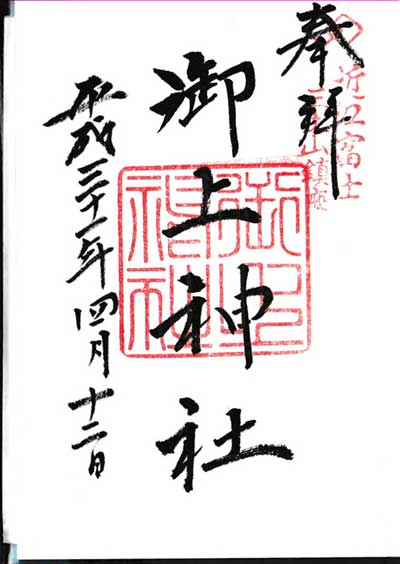 奉拝
近江富士
三上山鎮座
御上神社
御上神社
平成三十一年四月十二日